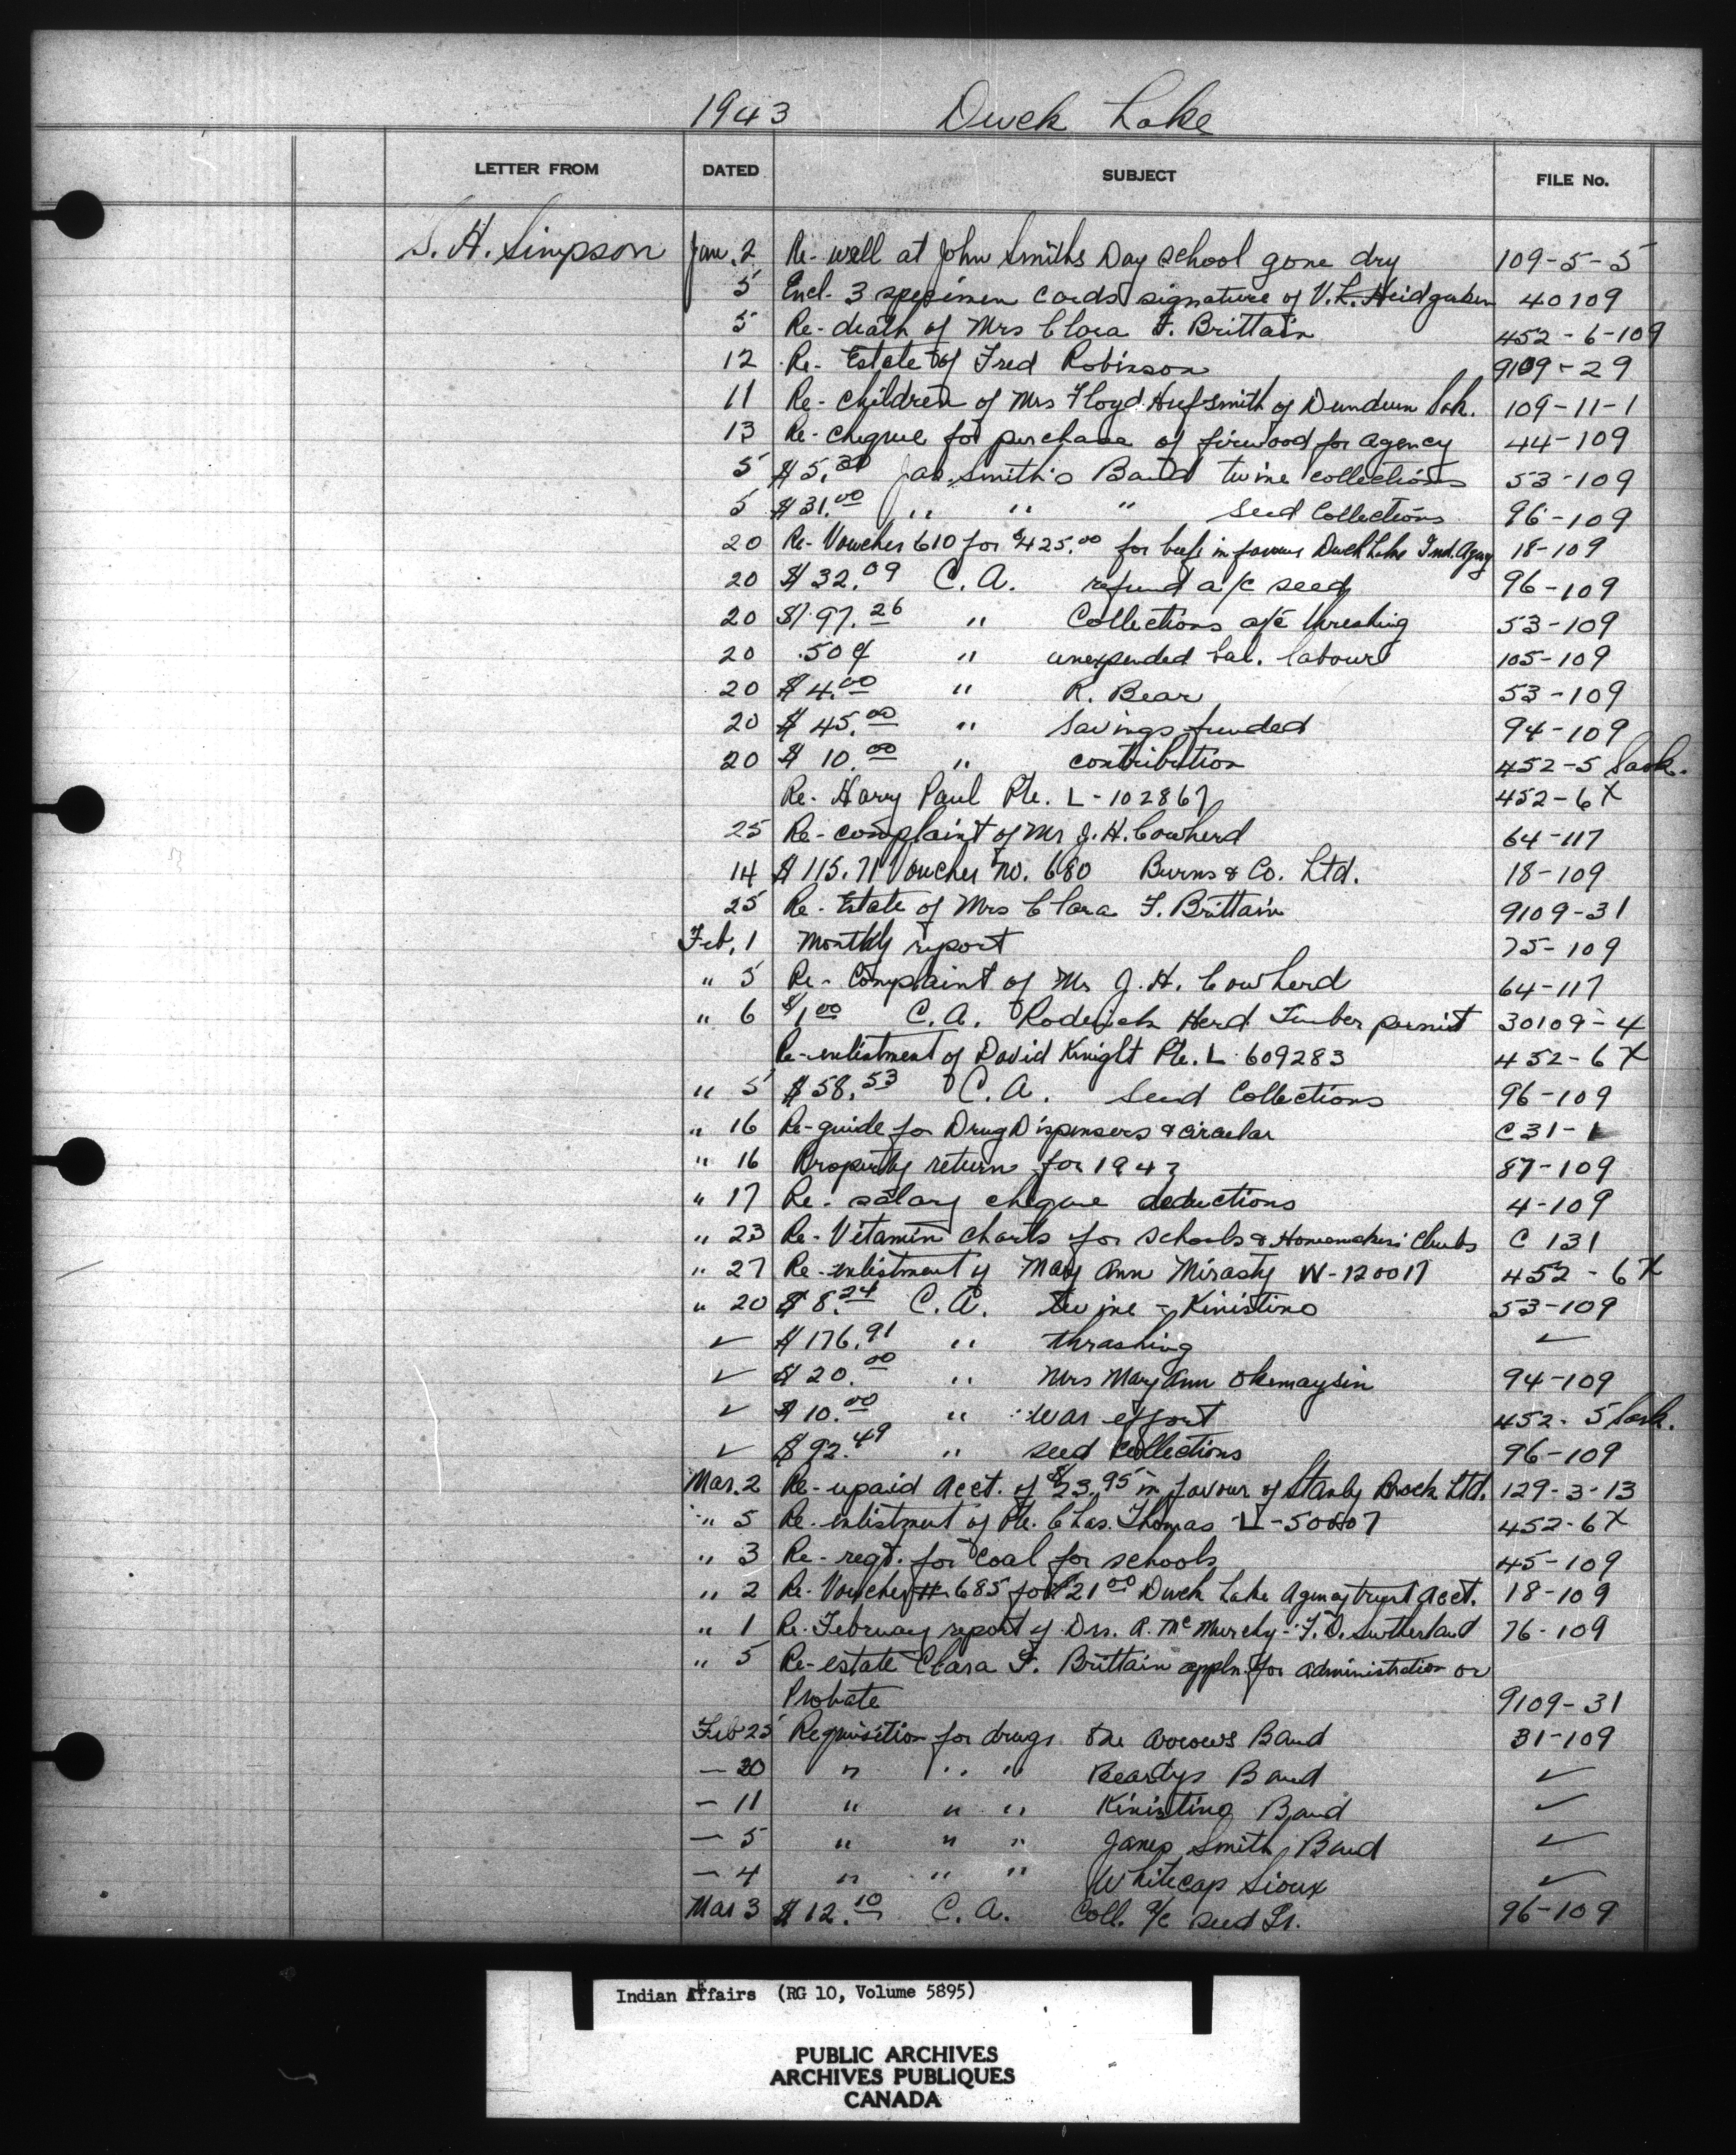 1943 Duck Lake
LETTER FROM DATED SUBJECT FILE No.
S. H. Simpson Jan. 2 Re- well at John Smiths Day School gone dry 109-5-5
5 Encl. 3 specimen cards signature of V. L. Heidgerken 40109
5 Re- death of Mrs Clara F. Brittain 452-6-109
12 Re- Estate of Fred Robinson 9109-29
11 Re- children of Mrs Floyd Hufsmith of Dundurn Sask. 109-11-1
13 Re- cheque for purchase of firwood for agency 44-109
5 $5. Jas. Smith's Band twine collections 53-109
5 $31.00 " " " Seed Collections 96-109
20 Re- Voucher 610 for $425.00 for beef in favour Duck Lake Ind. Agency 18-109
20 $32.09 C. A. refund a/c seed 96-109
20 $197.26 " Collections a/c threshing 53-109
20 .50¢ " unexpended bal. labour 105-109
20 $4.00 " R. Bear 53-109
20 $45.00 " Savings funded 94-109
20 $10.00 " contribution 452-5 Sask.
Re- Harry Paul Pte. L-102867 452-6X
25 Re- complaint of Mr J. H. Cowherd 64-117
14 $115.71 Voucher No. 680 Burns & Co. Ltd. 18-109
25 Re- Estate of Mrs Clara F. Brittain 9109-31
Feb. 1 Monthly report 75-109
" 5 Re- Complaint of Mr J. H. Cowherd 64-117
" 6 $1.00 C. A. Roderick Herd Timber permit 30109-4
Re-enlistment of David Knight Pte. L 609283 452-6X
" 5 $58.53 C. A. Seed Collections 96-109
" 16 Re-guide for Drug Dispensers & circular C31-1
" 16 Property return for 1943 87-109
" 17 Re- salary cheque deductions 4-109
" 23 Re- Vitamin charts for Schools & Homemakers' Clubs C 131
" 27 Re-enlistment of Mary Ann Mirasty W-120017 452-6X
" 20 $8.24 C. A. twine - Kinistino 53-109
✓ $176.91 " thrashing ✓
✓ $20.00 " Mrs Mary Ann Okemaysin 94-109
✓ $10.00 " war effort 452-5 Sask.
✓ $92.49 " seed collections 96-109
Mar. 2 Re- upaid Acct. of $23.95 in favour of Stanly Brock Ltd. 129-3-13
" 5 Re. enlistment of Pte. Chas. Thomas L- 452-6X
" 3 Re- regt. for coal for schools 45-109
" 2 Re- Voucher # 685 for $21.00 Duck Lake Agency trust acct. 18-109
" 1 Re. February report of Drs. A. McMurchy - F. D. Sutherland 76-109
" 5 Re- estate Clara F. Brittain appln. for administration or
Probate 9109-31
Feb 25 Requisition for drugs One Arrows Band 31-109
— 20 " " " Beardys Band ✓
— 11 " " " Kinistino Band ✓
— 5 " " " James Smith Band ✓
— 4 " " " Whitecap Sioux ✓
Mar 3 $12.10 C. A. Coll. a/c seed Gr. 96-109
Indian Affairs (RG 10, Volume 5895)
PUBLIC ARCHIVES
ARCHIVES PUBLIQUES
CANADA